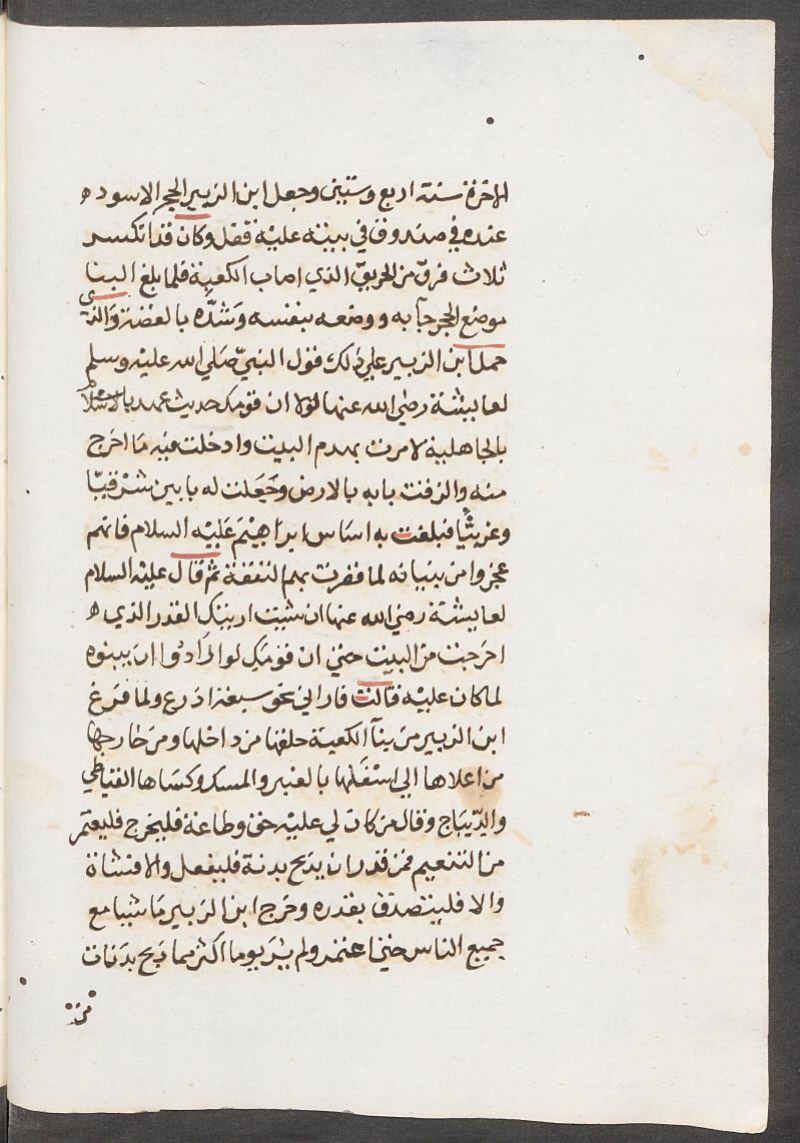 الاخرة سنة اربع وستين وجعل ابن الزبير الحجر الاسود ه
عنده في صندوق في بيته عليه قفل وكان قد انكسر
ثلاث فرق من الحريق الذي اصاب الكعبة فلما بلغ البنا
موضع الحجر جا به ووضعه بنفسه وشده بالفضة والذي
حمل ابن الزبير علي ذلك قول النبي صلي الله عليه وسلم
لعايشة رضي الله عنها لولا ان قومك حديث عهد بالاسلام
بالجاهلية لامرت بهدم البيت وادخلت فيه ما اخرج
منه والزقت بابه بالارض وجعلت له بابين شرقيا
وغربيا فبلغت به اساس ابراهيم عليه السلام فانهم
عجزوا من بنيانه لما قصرت بهم النفقة ثم قال عليه السلام
لعايشة رضي الله عنها ان شيت اريتك القدر الذي ه
اخرجت من البيت حتي ان قومك لو ارادوا ان يبنوه
لما كان عليه قالت فاراني نحو سبعة اذرع ولما فرغ
ابن الزبير من بنآ الكعبة خلقها من داخلها ومن خارجها
من اعلاها الي اسفلها بالعنبر والمسك وكساها القباطي
والديباج وقال من كان لي عليه حق وطاعة فليخرج فليعتمر
من التنعيم فمن قدر ان يذبح بدنة فليفعل والا فشاة
والا فليتصدق بقدره وخرج ابن الزبير ماشيا مع
جميع الناس حتي اعتمر ولم ير يوما اكثر مما ذبح بدنات
من